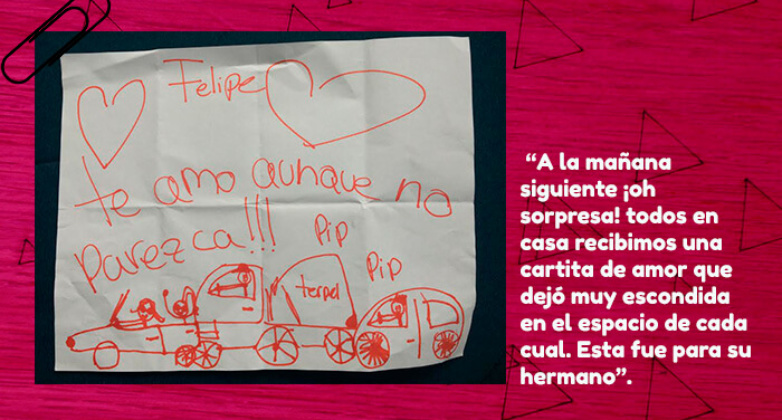 Felipe
te amo aunque no
parezca!!!
Pip
Pip
terpel
“A la mañana
siguiente ¡oh
sorpresa! todos en
casa recibimos una
cartita de amor que
dejó muy escondida
en el espacio de cada
cual. Esta fue para su
hermano”.